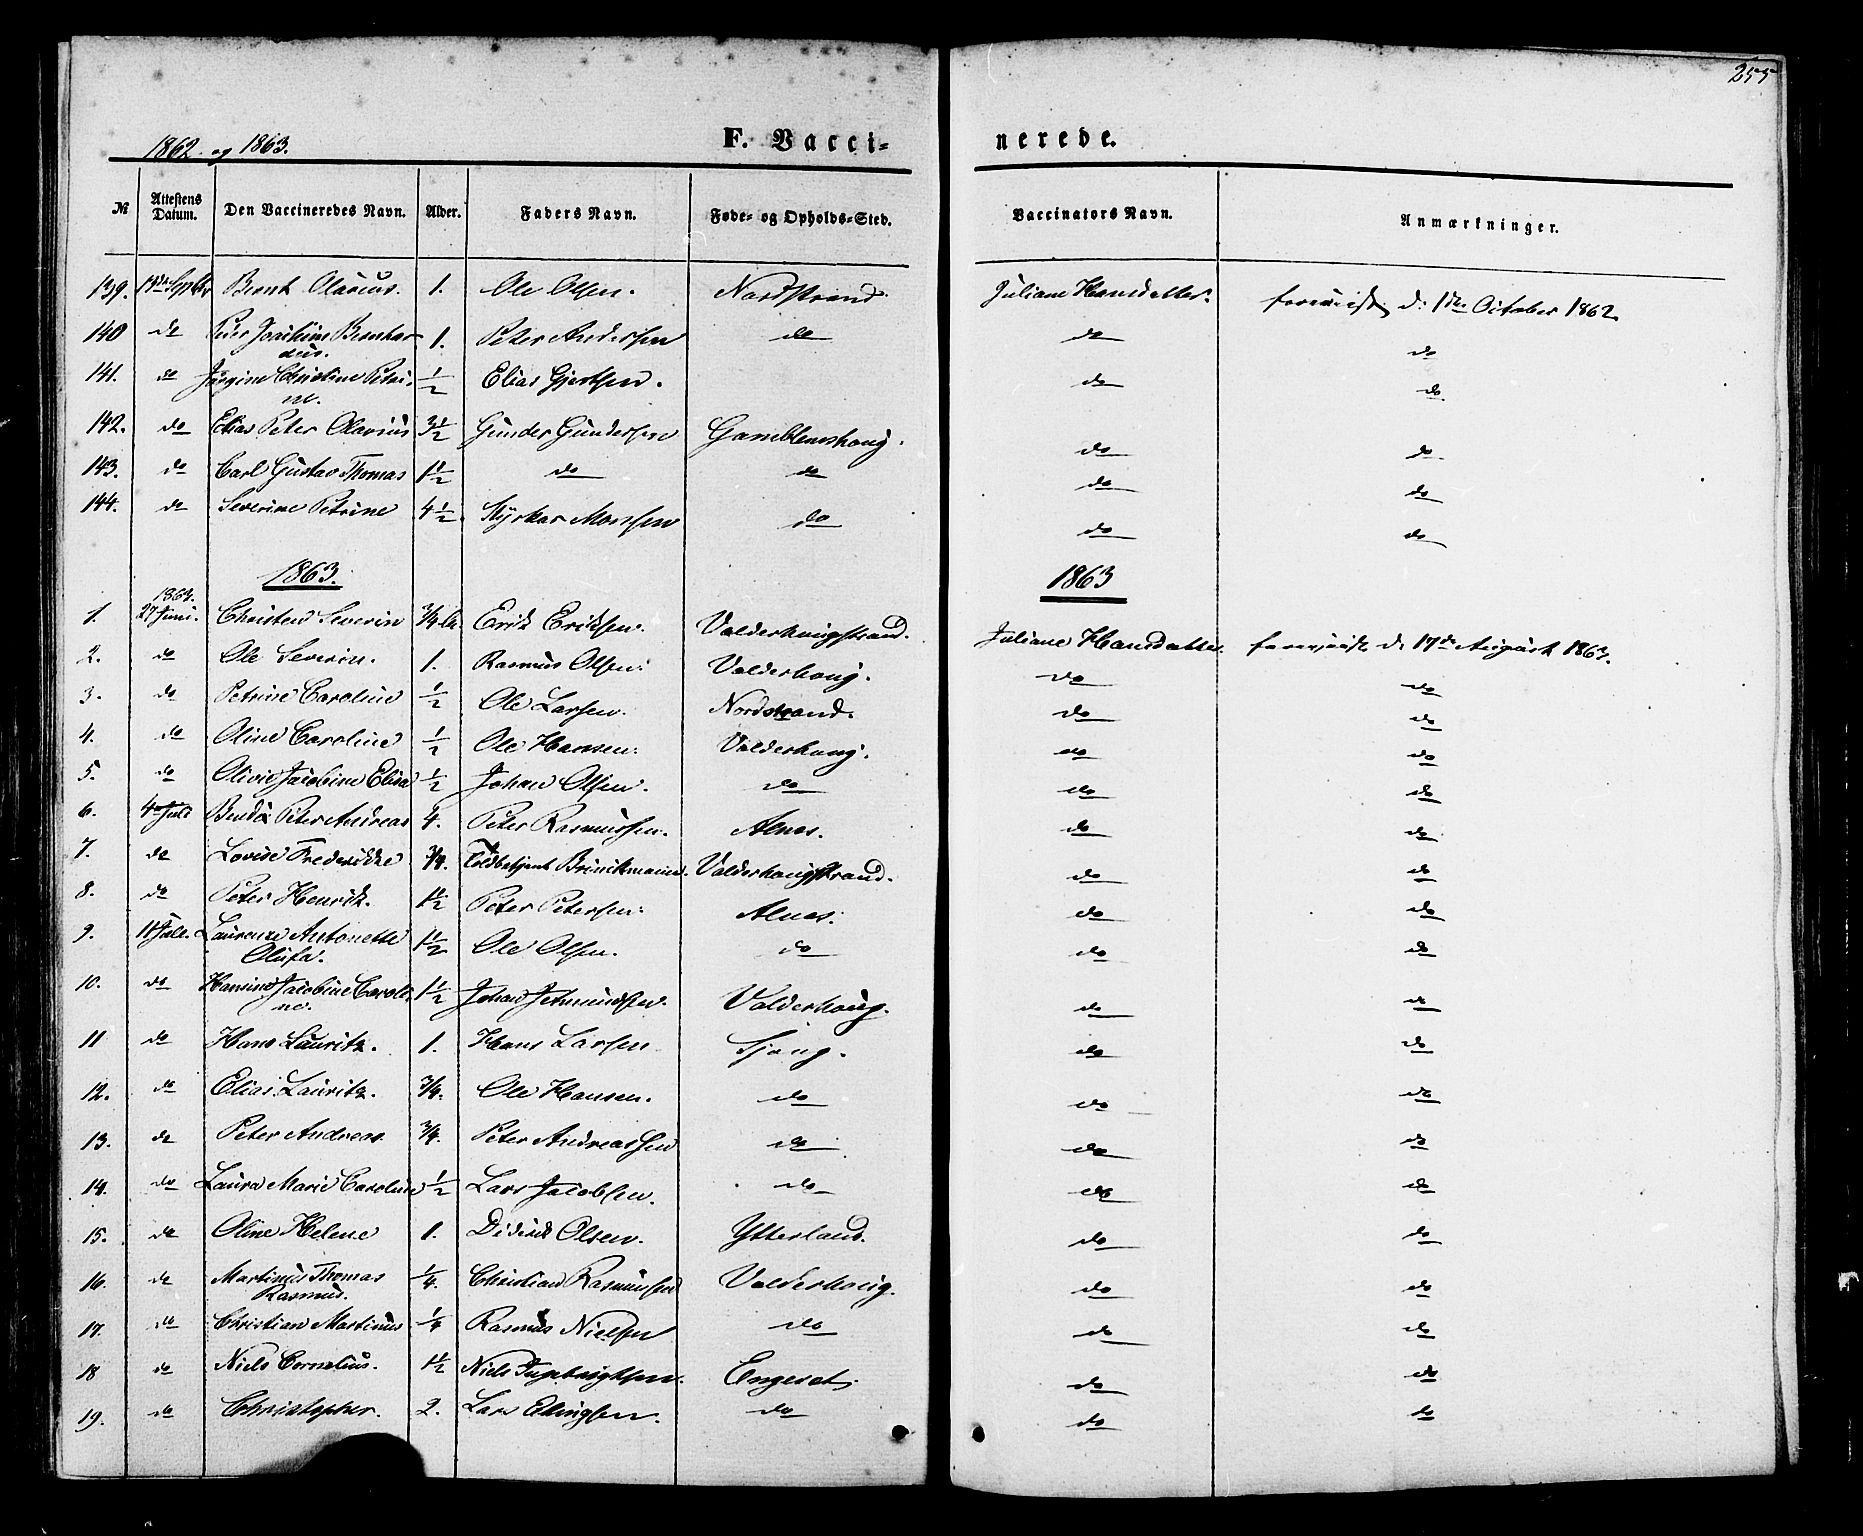 255
1862. og 1863.
F. Vacci-
nerede.
№ Attestens Datum. Den Vaccineredes Navn. Alder. Faders Navn. Føde- og Opholds-Sted. Vaccinators Navn. Anmærkninger.
139. Septbr Bernt Olarius. 1. Ole Olsen. Nordstrand Juliane Hansdatter. foreviist d: 1de October 1862.
140 do Peter Joachim Bernhar- 1. Peter Andersen do do do
dus.
141. do Jørgine Christine Petri- 1/2 Elias Gjertsen. do do
ne.
142. do Elias Peter Olavius 3 1/2 Gunder Gundersen do do
143. do Carl Gustav Thomas 1 1/2 do do do do
144. do Severine Petrine 4 1/2 Styrkar Monsen do do do
1863. 1863
1863.
1. 27 Juni. Christen Severin 3/4 Erik Eriksen. Valderhougstrand. Juliane Hansdatter. foreviist d. 17de August 1863.
2. do Ole Severin. 1. Rasmus Olsen. Valderhoug. do do
3. do Petrine Caroline 1/2 Ole Larsen. Nordstrand. do do
4. do Oline Caroline 1/2 Ole Hansen. Valderhoug. do do
5. do Olivie Jacobine Elisa 1/2 Johan Olsen. do do do
6. 4 Juli Peter Andreas 4. Peter Rasmussen. Alnes. do do
7. do Lovise Frederikke 3/4. Toldbetjent Brinckmann. Valderhougstrand. do do
8. do Peter Henrik. 1 1/2 Peter Petersen. Alnes. do do
9. 11 Juli. Laurenze Antonette 1 1/2 Ole Olsen. do do do
Olufa.
10. do Hansine Jacobine Caroli- 1 1/2 Johan Jetmundsen. Valderhoug. do do
ne.
11 do Hans Lauritz. 1. Hans Larsen Sjong. do do
12. do Elias Lauritz. 3/4. Ole Hansen. do do do
13. do Peter Andreas 3/4. Peter Andreassen do do do
14. do Laura Marie Caroline 1/2 Lars Jacobsen. do do do
15. do Oline Helene 1. Diderik Olsen. Ytterland. do do
16. do Martinus Thomas 1/4. Christian Rasmussen Valderhoug. do do
Rasmus.
17. do Christian Martinus 1/4 Rasmus Nielsen do do do
18 do Niels Cornelius. 1 1/2 Niels Ingebrigtsen. Engeset. do do
19. do Christopher. 2. Lars Ellingsen. do do do